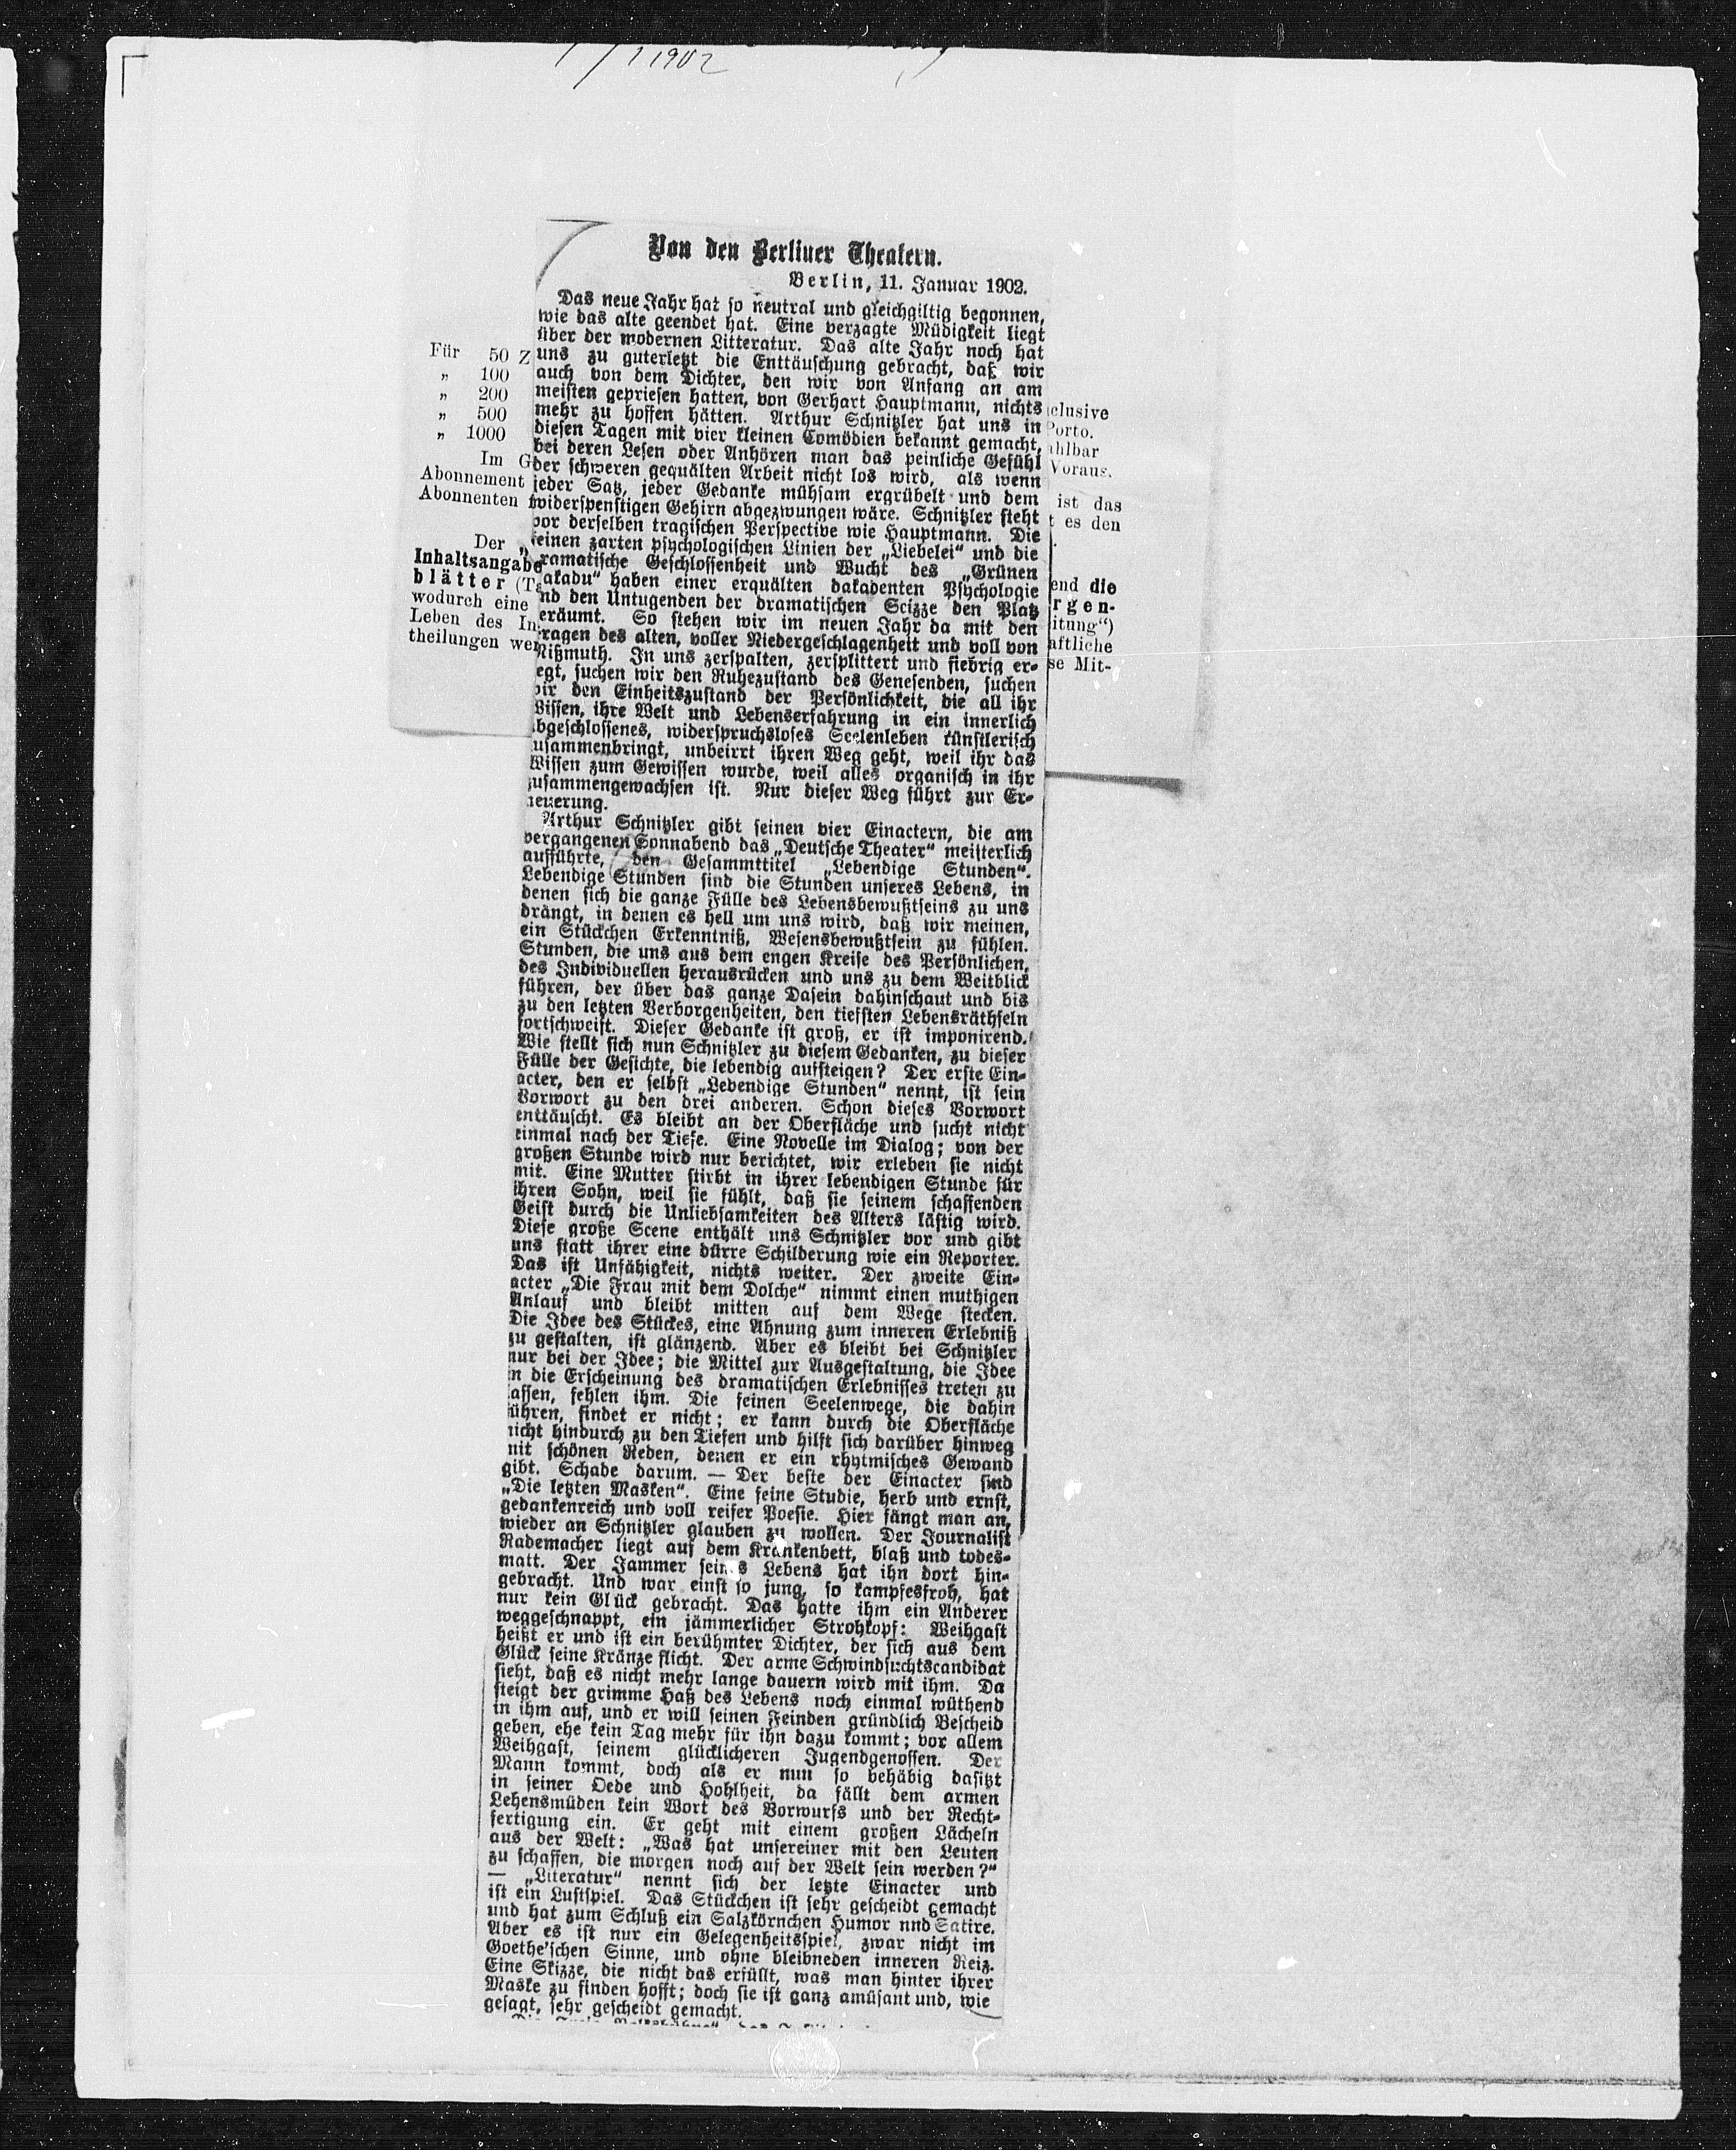 1902
Von den Berliner Theatern.
Berlin, 11. Januar 1902.
Das neue Jahr hat so neutral und gleichgiltig begonnen,
wie das alte geendet hat. Eine verzagte Müdigkeit liegt
über der modernen Litteratur. Das alte Jahr noch hat
uns zu guterletzt die Enttäuschung gebracht, daß wir
auch von dem Dichter, den wir von Anfang an am
meisten gepriesen hatten, von Gerhart Hauptmann, nichts
mehr zu hoffen hätten. Arthur Schnitzler hat uns in
diesen Tagen mit vier kleinen Comödien bekannt gemacht,
bei deren Lesen oder Anhören man das peinliche Gefühl
der schweren gequälten Arbeit nicht los wird, als wenn
jeder Satz, jeder Gedanke mühsam ergrübelt und dem
widerspenstigen Gehirn abgezwungen wäre. Schnitzler steht
vor derselben tragischen Perspective wie Hauptmann. Die
feinen zarten psychologischen Linien der „Liebelei“ und die
ramatische Geschlossenheit und Wucht des „Grünen
akadu“ haben einer erquälten dakadenten Psychologie
nd den Untugenden der dramatischen Scizze den Platz
eräumt. So stehen wir im neuen Jahr da mit den
ragen des alten, voller Niedergeschlagenheit und voll von
Mißmuth. In uns zerspalten, zersplittert und fiebrig er-
egt, suchen wir den Ruhezustand des Genesenden, suchen
wir den Einheitszustand der Persönlichkeit, die all ihr
Wissen, ihre Welt und Lebenserfahrung in ein innerlich
abgeschlossenes, widerspruchsloses Seelenleben künstlerisch
zusammenbringt, unbeirrt ihren Weg geht, weil ihr das
Wissen zum Gewissen wurde, weil alles organisch in ihr
zusammengewachsen ist. Nur dieser Weg führt zur Er-
neuerung.
Arthur Schnitzler gibt seinen vier Einactern, die am
vergangenen Sonnabend das „Deutsche Theater“ meisterlich
aufführte, den Gesammttitel „Lebendige Stunden“.
Lebendige Stunden sind die Stunden unseres Lebens, in
denen sich die ganze Fülle des Lebensbewußtseins zu uns
drängt, in denen es hell um uns wird, daß wir meinen,
ein Stückchen Erkenntniß, Wesensbewußtsein zu fühlen.
Stunden, die uns aus dem engen Kreise des Persönlichen,
des Individuellen herausrücken und uns zu dem Weitblick
führen, der über das ganze Dasein dahinschaut und bis
zu den letzten Verborgenheiten, den tiefsten Lebensräthseln
fortschweift. Dieser Gedanke ist groß, er ist imponirend.
Wie stellt sich nun Schnitzler zu diesem Gedanken, zu dieser
Fülle der Gesichte, die lebendig aufsteigen? Der erste Ein-
acter, den er selbst „Lebendige Stunden“ nennt, ist sein
Vorwort zu den drei anderen. Schon dieses Vorwort
enttäuscht. Es bleibt an der Oberfläche und sucht nicht
einmal nach der Tiefe. Eine Novelle im Dialog; von der
großen Stunde wird nur berichtet, wir erleben sie nicht
mit. Eine Mutter stirbt in ihrer lebendigen Stunde für
ihren Sohn, weil sie fühlt, daß sie seinem schaffenden
Geist durch die Unliebsamkeiten des Alters lästig wird.
Diese große Scene enthält uns Schnitzler vor und gibt
uns statt ihrer eine dürre Schilderung wie ein Reporter.
Das ist Unfähigkeit, nichts weiter. Der zweite Ein-
acter „Die Frau mit dem Dolche“ nimmt einen muthigen
Anlauf und bleibt mitten auf dem Wege stecken.
Die Idee des Stückes, eine Ahnung zum inneren Erlebniß
zu gestalten, ist glänzend. Aber es bleibt bei Schnitzler
nur bei der Idee; die Mittel zur Ausgestaltung, die Idee
in die Erscheinung des dramatischen Erlebnisses treten zu
lassen, fehlen ihm. Die feinen Seelenwege, die dahin
führen, findet er nicht; er kann durch die Oberfläche
nicht hindurch zu den Tiefen und hilft sich darüber hinweg
mit schönen Reden, denen er ein rhytmisches Gewand
gibt. Schade darum. — Der beste der Einacter sind
„Die letzten Masken“. Eine feine Studie, herb und ernst,
gedankenreich und voll reifer Poesie. Hier fängt man an,
wieder an Schnitzler glauben zu wollen. Der Journalist
Rademacher liegt auf dem Krankenbett, blaß und todes-
matt. Der Jammer seines Lebens hat ihn dort hin-
gebracht. Und war einst so jung, so kampfesfroh, hat
nur kein Glück gebracht. Das hatte ihm ein Anderer
weggeschnappt, ein jämmerlicher Strohkopf: Weihgast
heißt er und ist ein berühmter Dichter, der sich aus dem
Glück seine Kränze flicht. Der arme Schwindsuchtscandidat
sieht, daß es nicht mehr lange dauern wird mit ihm. Da
steigt der grimme Haß des Lebens noch einmal wüthend
in ihm auf, und er will seinen Feinden gründlich Bescheid
geben, ehe kein Tag mehr für ihn dazu kommt; vor allem
Weihgast, seinem glücklicheren Jugendgenossen. Der
Mann kommt, doch als er nun so behäbig dasitzt
in seiner Oede und Hohlheit, da fällt dem armen
Lebensmüden kein Wort des Vorwurfs und der Recht-
fertigung ein. Er geht mit einem großen Lächeln
aus der Welt: „Was hat unsereiner mit den Leuten
zu schaffen, die morgen noch auf der Welt sein werden?“
— „Literatur“ nennt sich der letzte Einacter und
ist ein Lustspiel. Das Stückchen ist sehr gescheidt gemacht
und hat zum Schluß ein Salzkörnchen Humor nnd Satire.
Aber es ist nur ein Gelegenheitsspiel, zwar nicht im
Goethe'schen Sinne, und ohne bleibneden inneren Reiz.
Eine Skizze, die nicht das erfüllt, was man hinter ihrer
Maske zu finden hofft; doch sie ist ganz amüsant und, wie
gesagt, sehr gescheidt gemacht.
Für 50 Z
„ 100
„ 200
„ 500
„ 1000
Im G
Abonnement
Abonnenten
Der „
Inhaltsangabe
blätter (T
wodurch eine
Leben des In
theilungen wer
clusive
Porto.
ahlbar
Voraus.
ist das
t es den
end die
rgen-
itung“)
aftliche
se Mit-